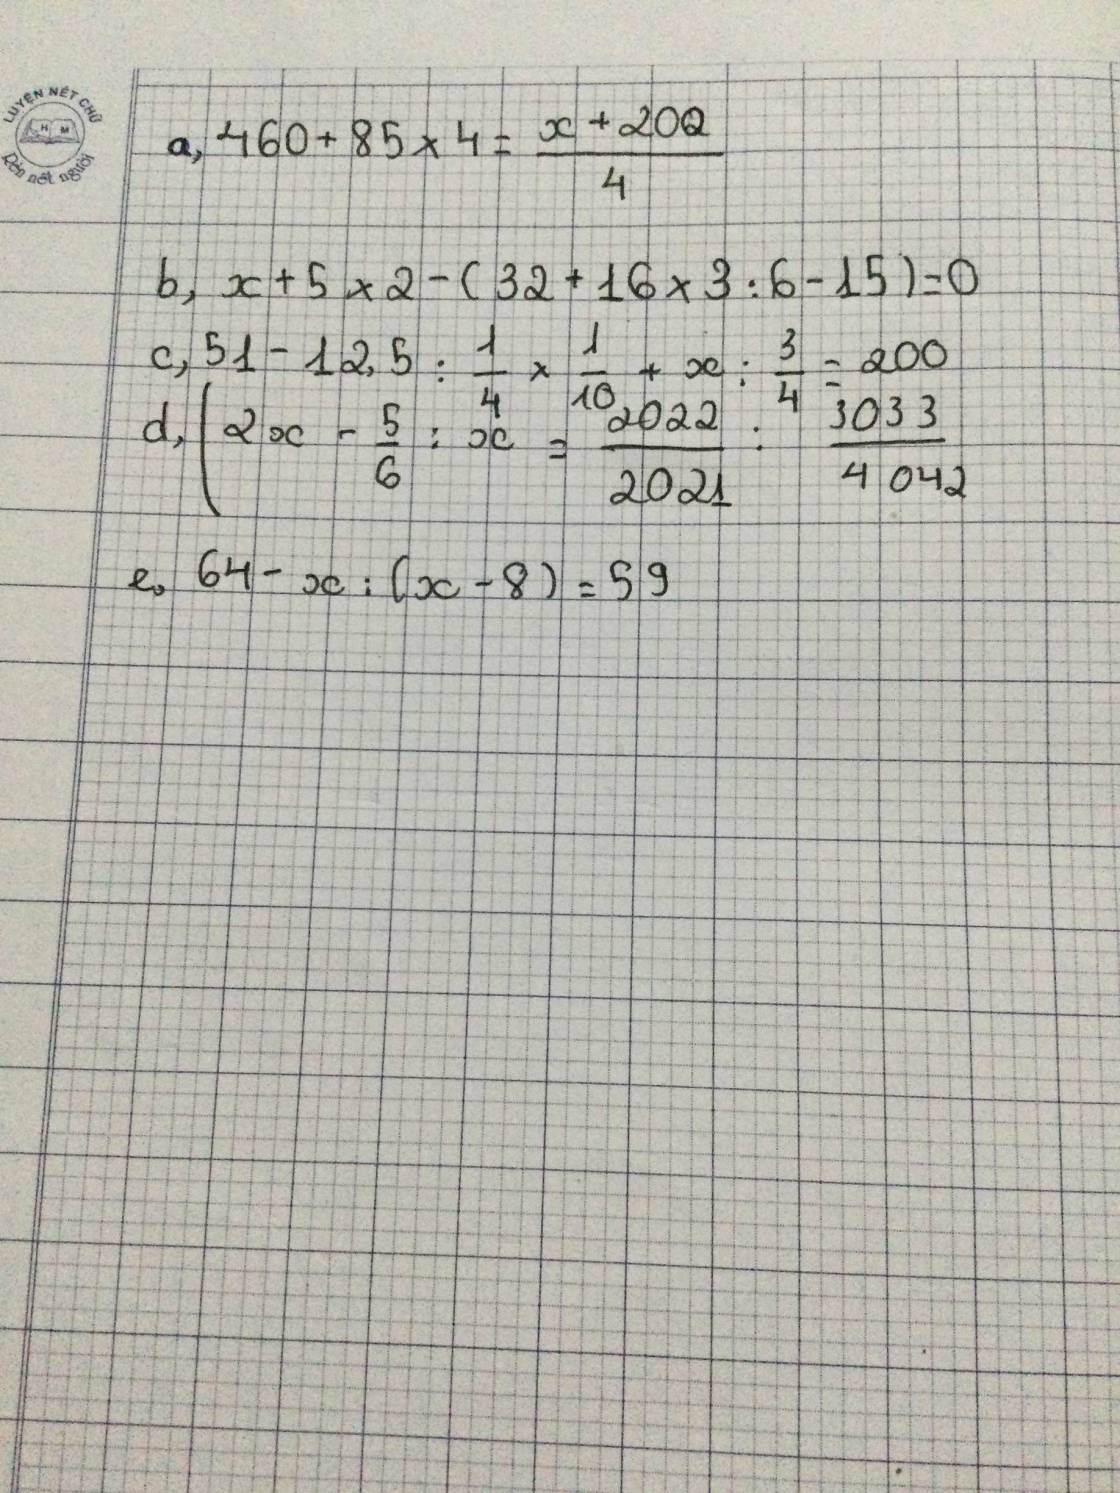 LUYỆN NÉT CHỮ
H M
Rèn nết người
a, 460 + 85 × 4 = \frac{x + 200}{4}
b, x + 5 × 2 - ( 32 + 16 × 3 : 6 - 15 ) = 0
c, 51 - 12,5 : \frac{1}{4} × \frac{1}{10} + x : \frac{3}{4} = 200
d, ( 2x - \frac{5}{6} : x = \frac{2022}{2021} : \frac{3033}{4042}
e, 64 - x : ( x - 8 ) = 59